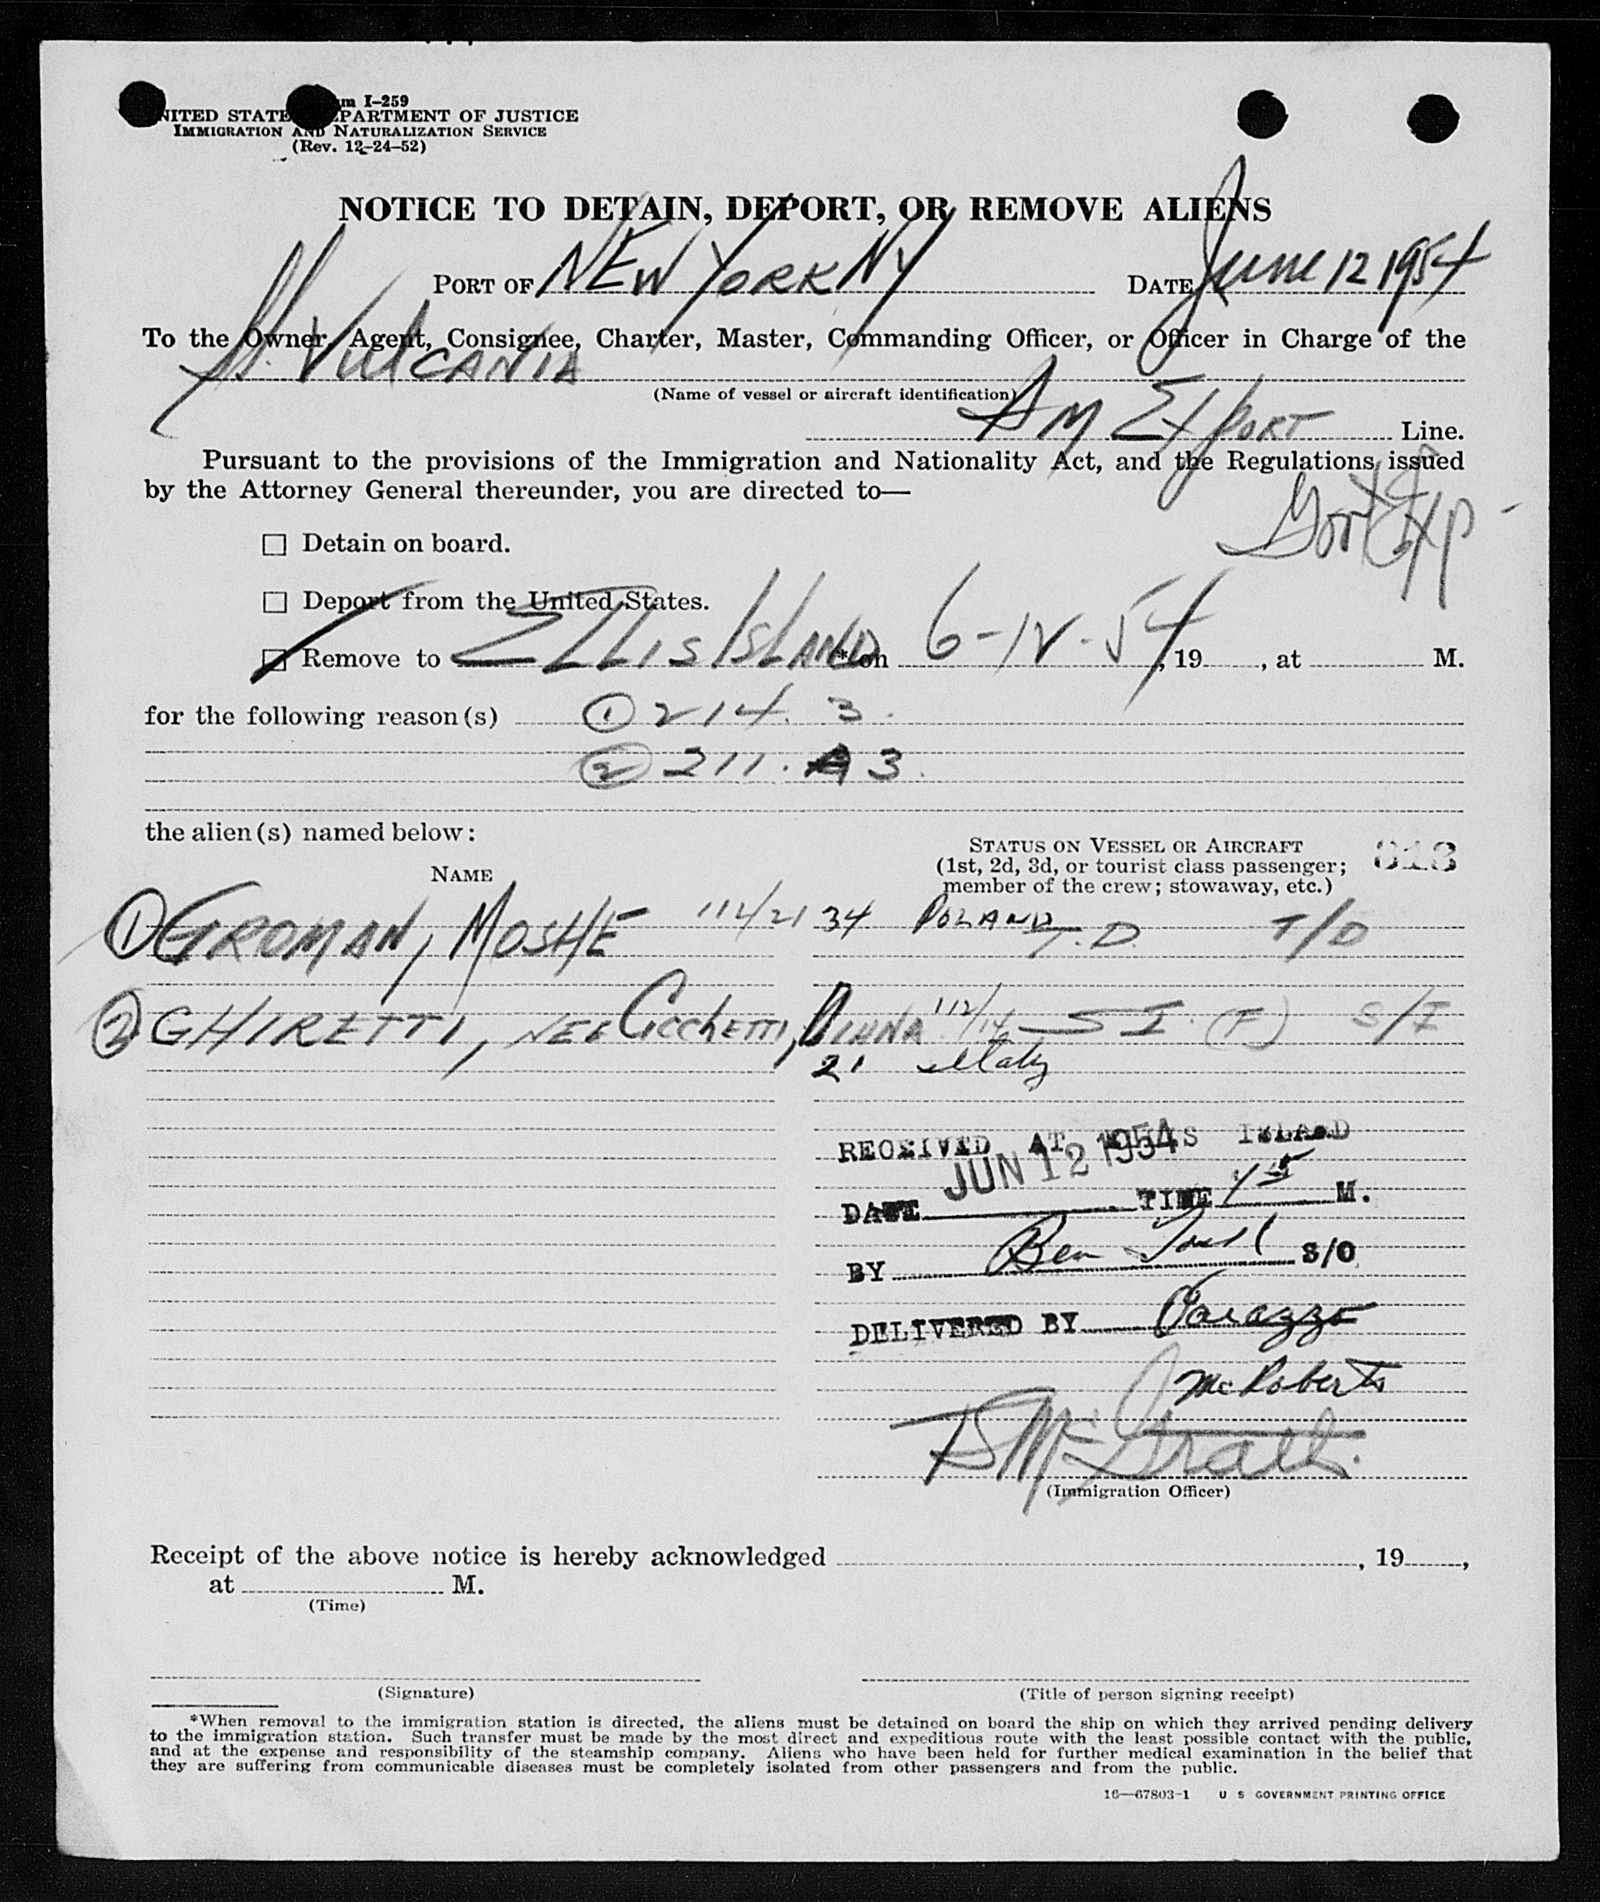 Form I-259
UNITED STATES DEPARTMENT OF JUSTICE
IMMIGRATION AND NATURALIZATION SERVICE
(Rev. 12-24-52)
NOTICE TO DETAIN, DEPORT, OR REMOVE ALIENS
PORT OF NEW YORK NY DATE June 12 1954
To the Owner, Agent, Consignee, Charter, Master, Commanding Officer, or Officer in Charge of the
VULCANIA
(Name of vessel or aircraft identification)
Am Export Line.
Pursuant to the provisions of the Immigration and Nationality Act, and the Regulations issued
by the Attorney General thereunder, you are directed to—
Gov't Exp -
☐ Detain on board.
☐ Deport from the United States.
☐ Remove to ELLIS ISLAND *on 6-12-54, 19, at M.
for the following reason(s) ① 214. 3.
② 211. A 3.
the alien(s) named below:
STATUS ON VESSEL OR AIRCRAFT
(1st, 2d, 3d, or tourist class passenger;
member of the crew; stowaway, etc.)
NAME
① GROMAN, MOSHE 34 POLAND T.D. T/D
② GHIRETTI, NEE CICCHETTI, DIANA S I (F) S/I
21 Italy
RECEIVED AT ELLIS ISLAND
DATE JUN 12 1954 TIME M.
BY Ben S/O
DELIVERED BY
McRoberts
McGrath
(Immigration Officer)
Receipt of the above notice is hereby acknowledged , 19 ,
at M.
(Time)
(Signature) (Title of person signing receipt)
*When removal to the immigration station is directed, the aliens must be detained on board the ship on which they arrived pending delivery
to the immigration station. Such transfer must be made by the most direct and expeditious route with the least possible contact with the public,
and at the expense and responsibility of the steamship company. Aliens who have been held for further medical examination in the belief that
they are suffering from communicable diseases must be completely isolated from other passengers and from the public.
16—67803-1 U S GOVERNMENT PRINTING OFFICE